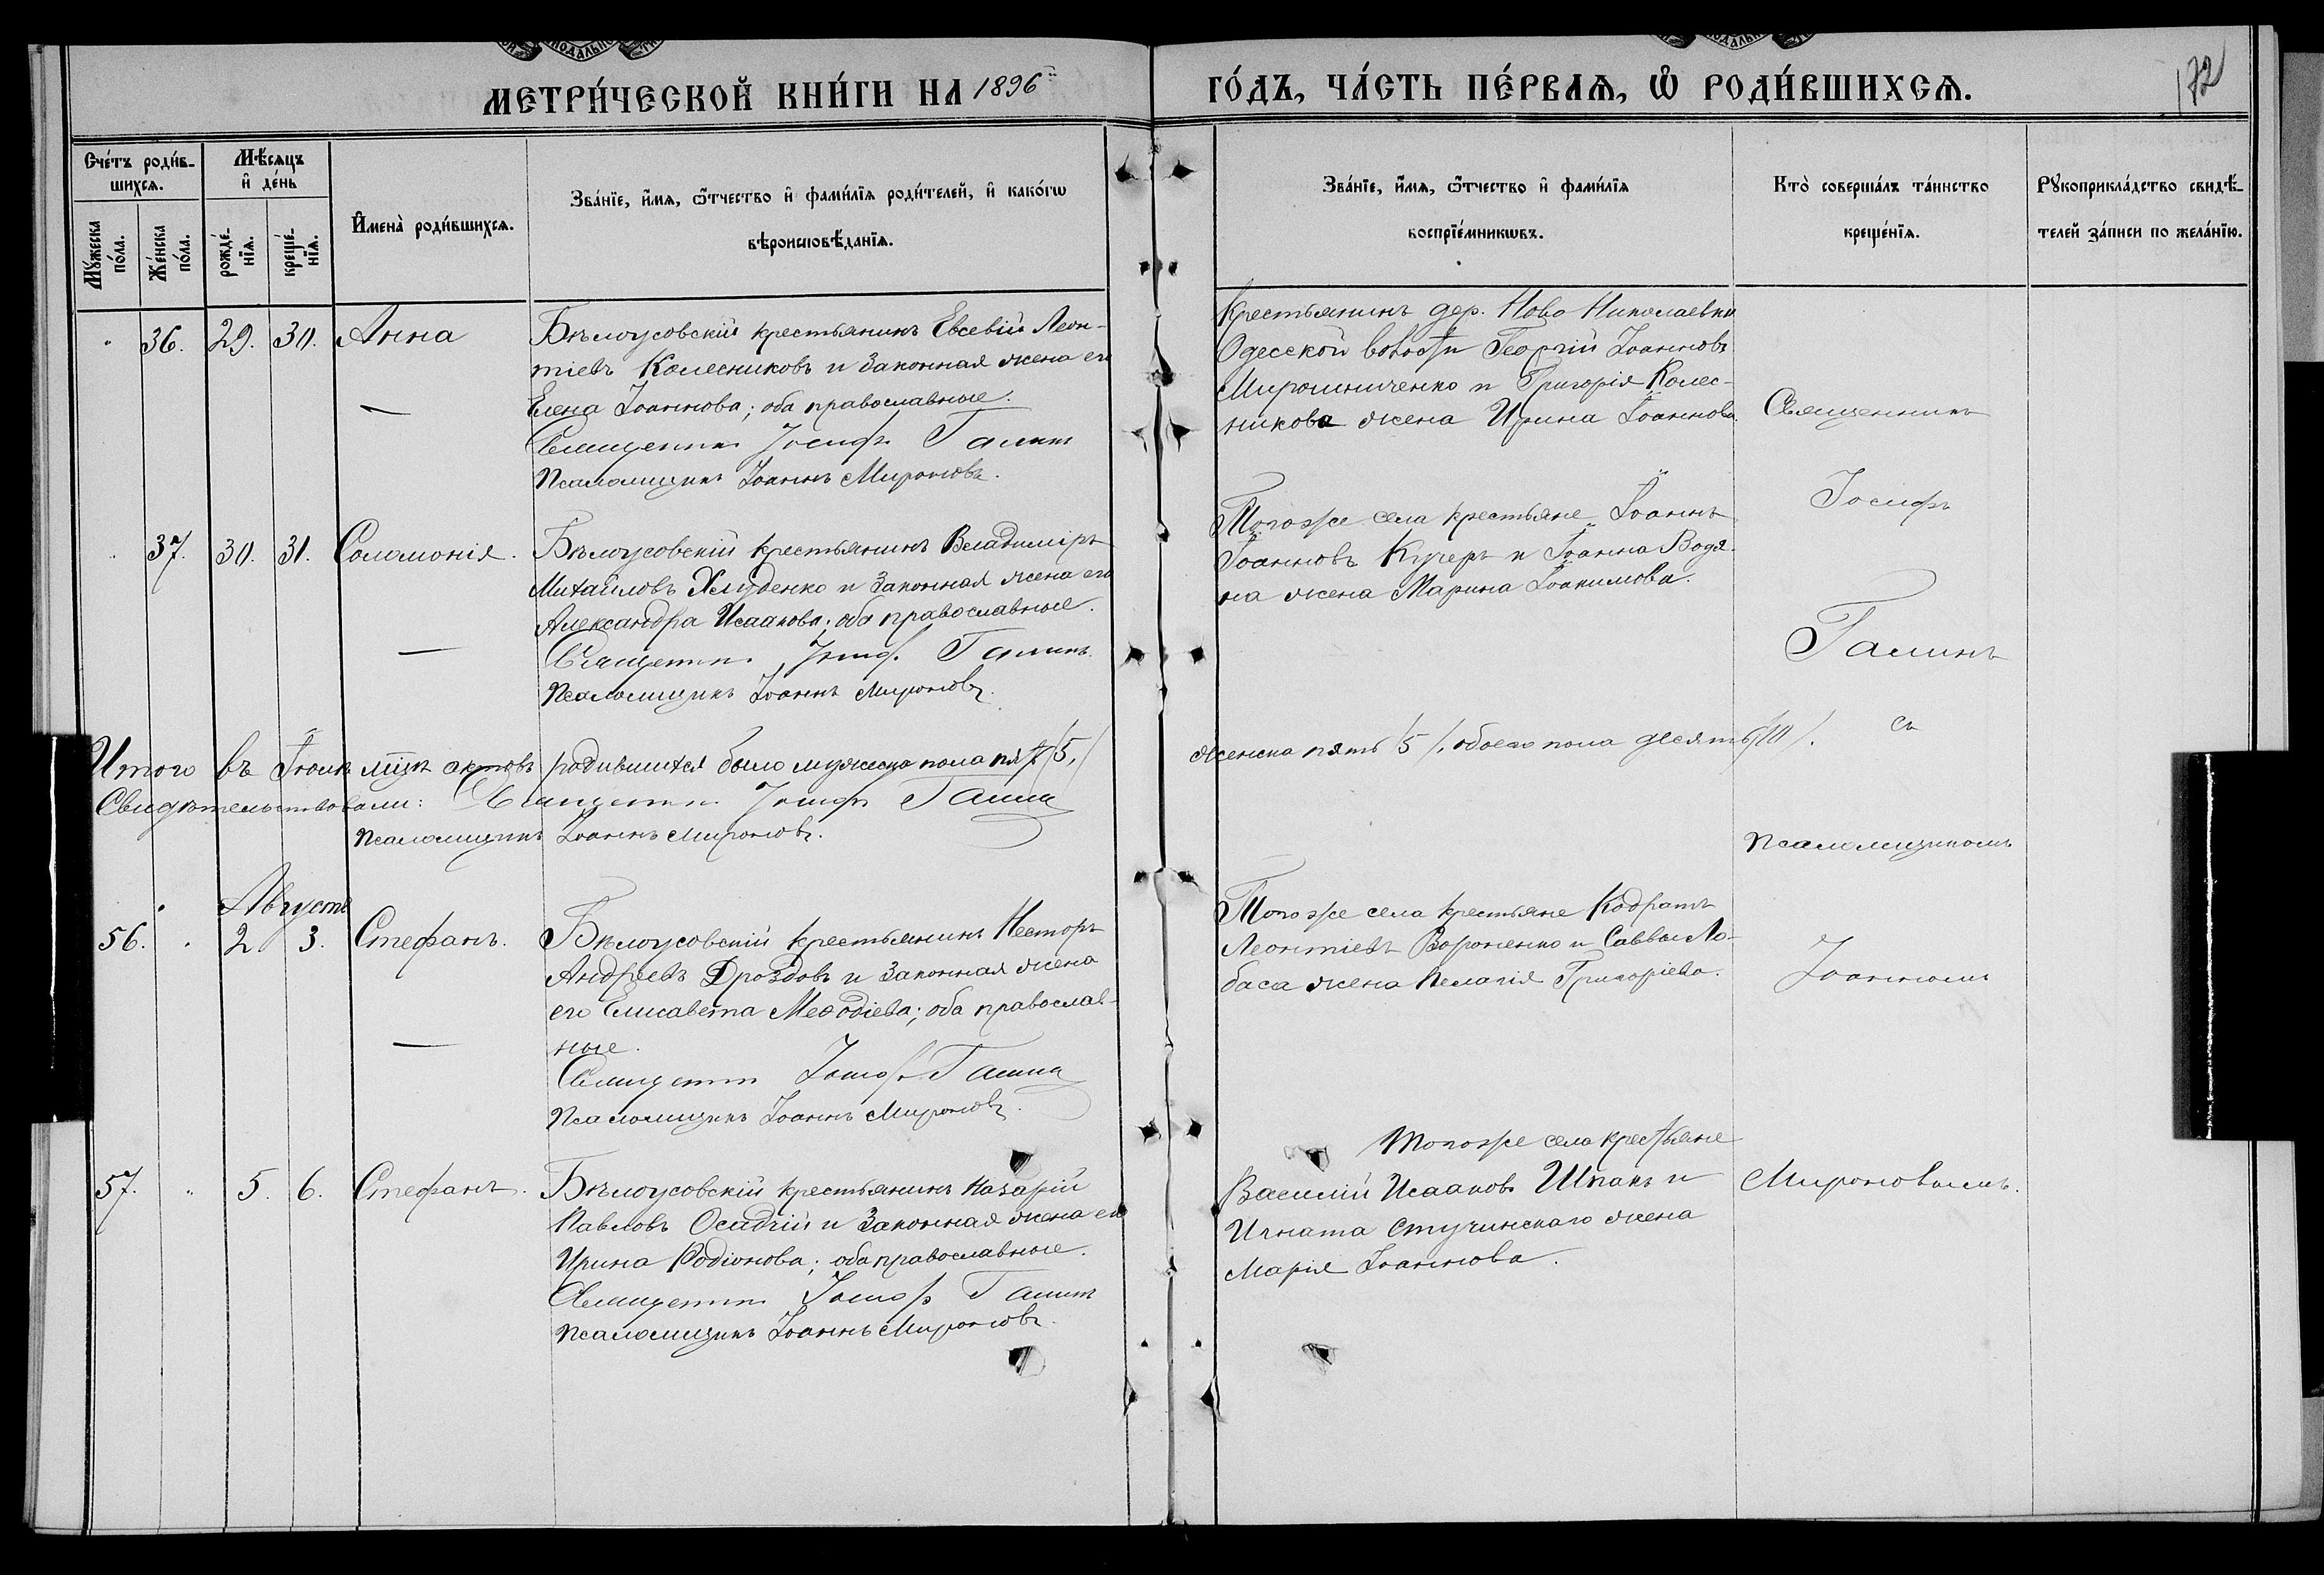 МЕТРИ́ЧЕСКОЙ КНИ́ГИ НА 1896й
ГО́ДЪ, ЧА́СТЬ ПЕ́РВАѦ, Ѡ РОДИ́ВШИХСѦ.
172
Сче́тъ роди́в-
шихсѧ.
Мꙋ́жеска
по́ла.
Же́нска
по́ла.
Мѣ́сѧцъ
и҆ де́нь
рожде́-
нїѧ.
креще́-
нїѧ.
И҆мена̀ роди́вшихсѧ.
Зва́нїе, и҆́мѧ, ѻ҆́тчество и҆ фами́лїѧ роди́телей, и҆ како́гѡ
вѣроисповѣ́данїѧ.
Зва́нїе, и҆́мѧ, ѻ҆́тчество и҆ фами́лїѧ
воспрїе́мникѡвъ.
Кто̀ соверша́лъ та́инство
креще́нїѧ.
Рꙋкоприкла́дство свидѣ́-
телей за́писи по жела́нїю.
36. 29. 30. Анна
Бѣлоусовскій крестьянинъ Евсевій Леон-
тіевъ Колесниковъ и законная жена его
Елена Іоаннова; оба православные.
Священникъ Іосифъ Галинъ
Псаломщикъ Іоаннъ Мироновъ.
Крестьянинъ дер. Ново Николаевки
Одесской волости Георгій Іоанновъ
Мирошниченко и Григорія Колес-
никова жена Ирина Іоаннова.
Священникъ
Іосифъ
Галинъ
съ
Псаломщикомъ
Іоанномъ
Мироновымъ.
37. 30. 31. Соломонія.
Бѣлоусовскій крестьянинъ Владиміръ
Михайловъ Хлуденко и законная жена его
Александра Исаакова; оба православные.
Священникъ Іосифъ Галинъ
Псаломщикъ Іоаннъ Мироновъ.
Тогоже села крестьяне Іоаннъ
Іоанновъ Кучеръ и Іоанна Водя-
на жена Марина Іоакимова.
Итого въ Іюлѣ мцѣ актовъ родившихся было мужеска пола пять /5,/
женска пять /5/, обоего пола десять /10/.
Свидѣтельствовали: Священникъ Іосифъ Галинъ
Псаломщикъ Іоаннъ Мироновъ.
Августъ
56. 2. 3. Стефанъ.
Бѣлоусовскій крестьянинъ Несторъ
Андреевъ Дроздовъ и законная жена
его Елисавета Меѳодіева; оба православ-
ные.
Священникъ Іосифъ Галинъ
Псаломщикъ Іоаннъ Мироновъ.
Тогоже села крестьяне Кодратъ
Леонтіевъ Вороненко и Саввы Ло-
баса жена Пелагія Григоріева.
57. 5. 6. Стефанъ.
Бѣлоусовскій крестьянинъ Назарій
Павловъ Осадчій и законная жена его
Ирина Родіонова; оба православные.
Священникъ Іосифъ Галинъ
Псаломщикъ Іоаннъ Мироновъ.
Тогоже села крестьяне
Василій Исааковъ Шпакъ и
Игната Стучинскаго жена
Марія Іоаннова.